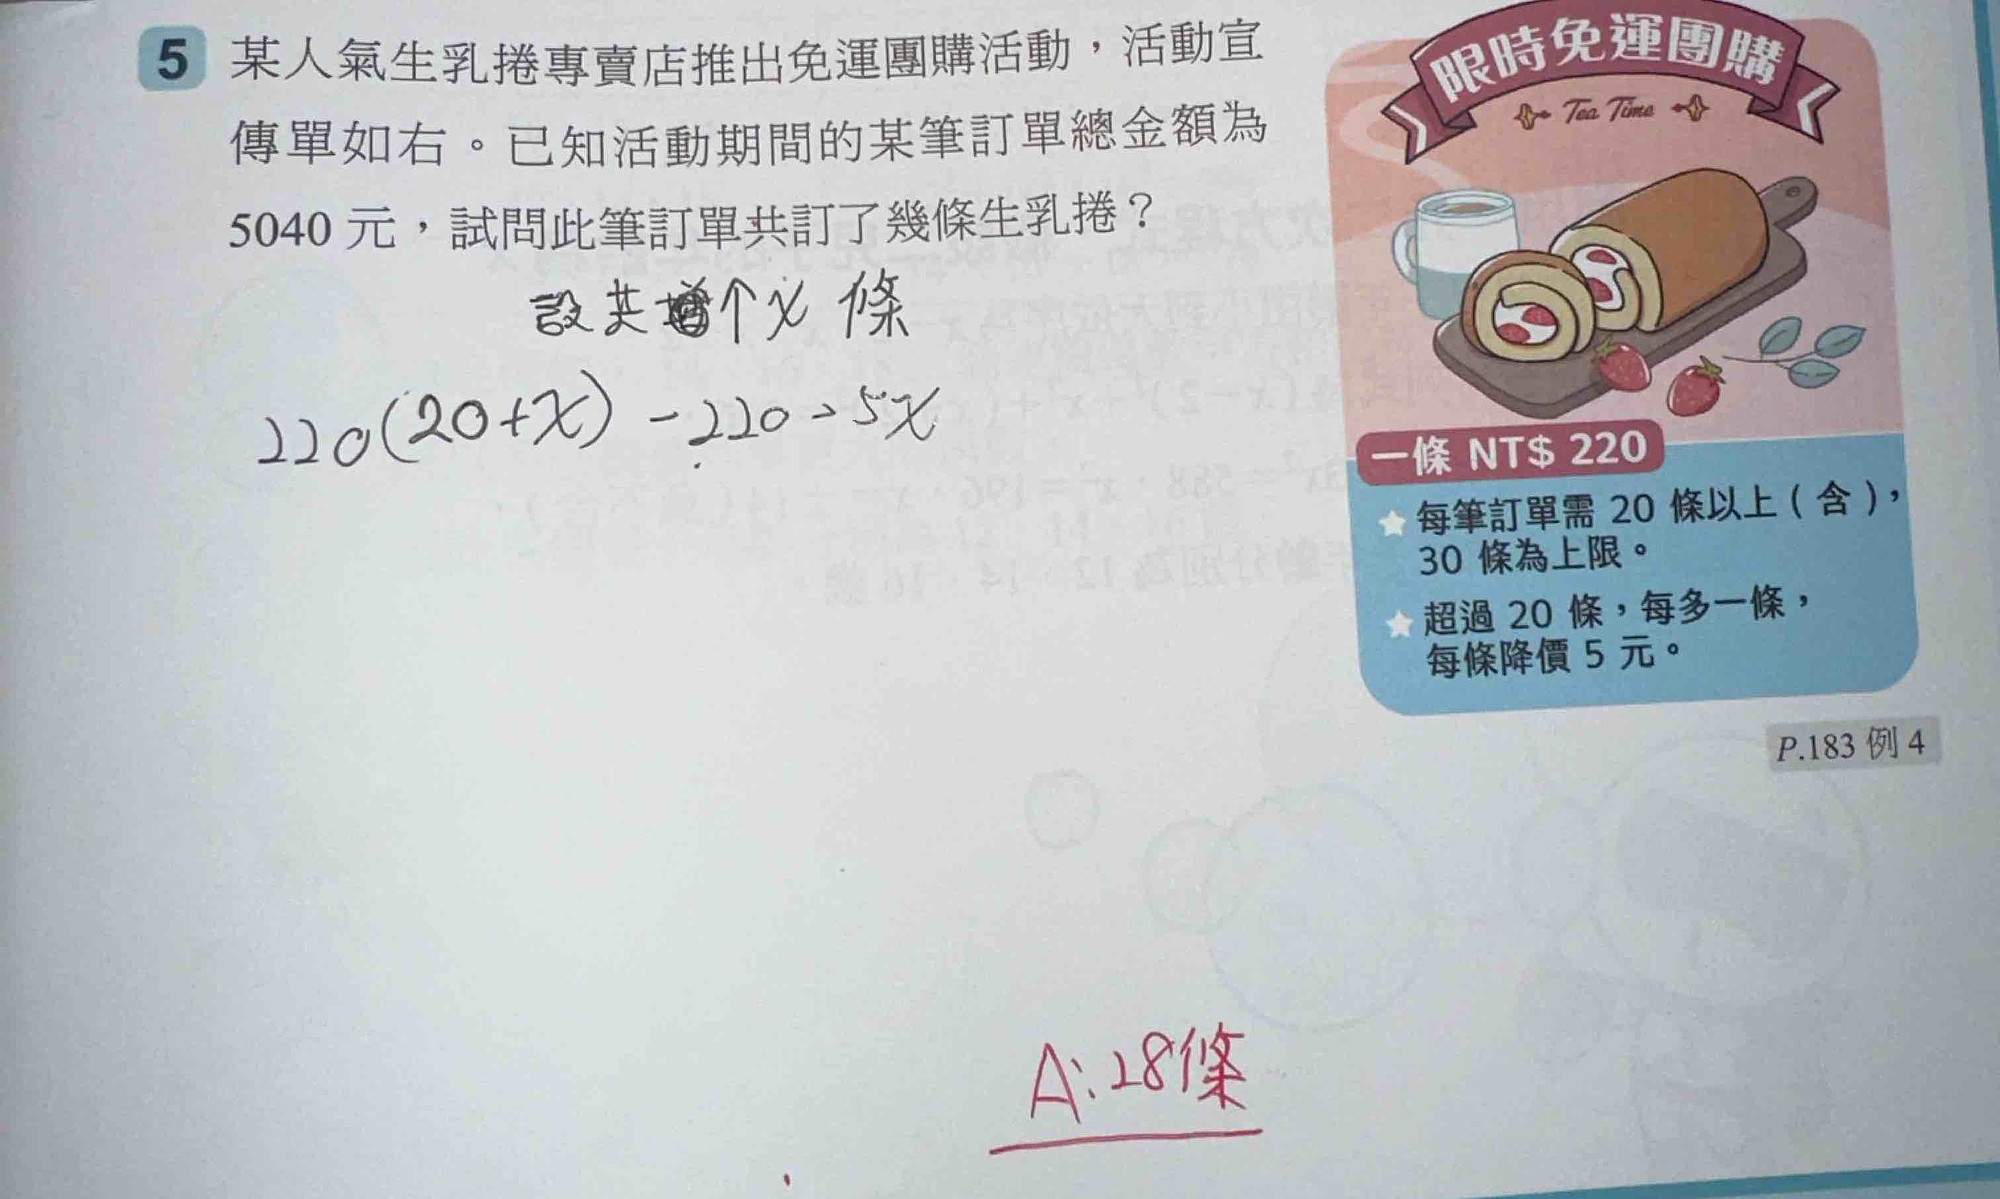 5 某人氣生乳捲專賣店推出免運團購活動，活動宣
傳單如右。已知活動期間的某筆訂單總金額為
5040 元，試問此筆訂單共訂了幾條生乳捲？
設共個x 條
220(20+x) -220-5x
A:28條
限時免運團購
Tea Time
一條 NT$ 220
每筆訂單需 20 條以上（含），
30 條為上限。
超過 20 條，每多一條，
每條降價 5 元。
P.183 例 4